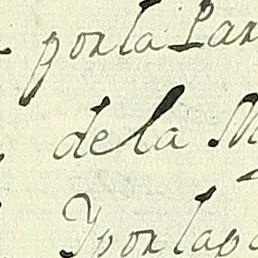 por la Par
de la M
Y por la p